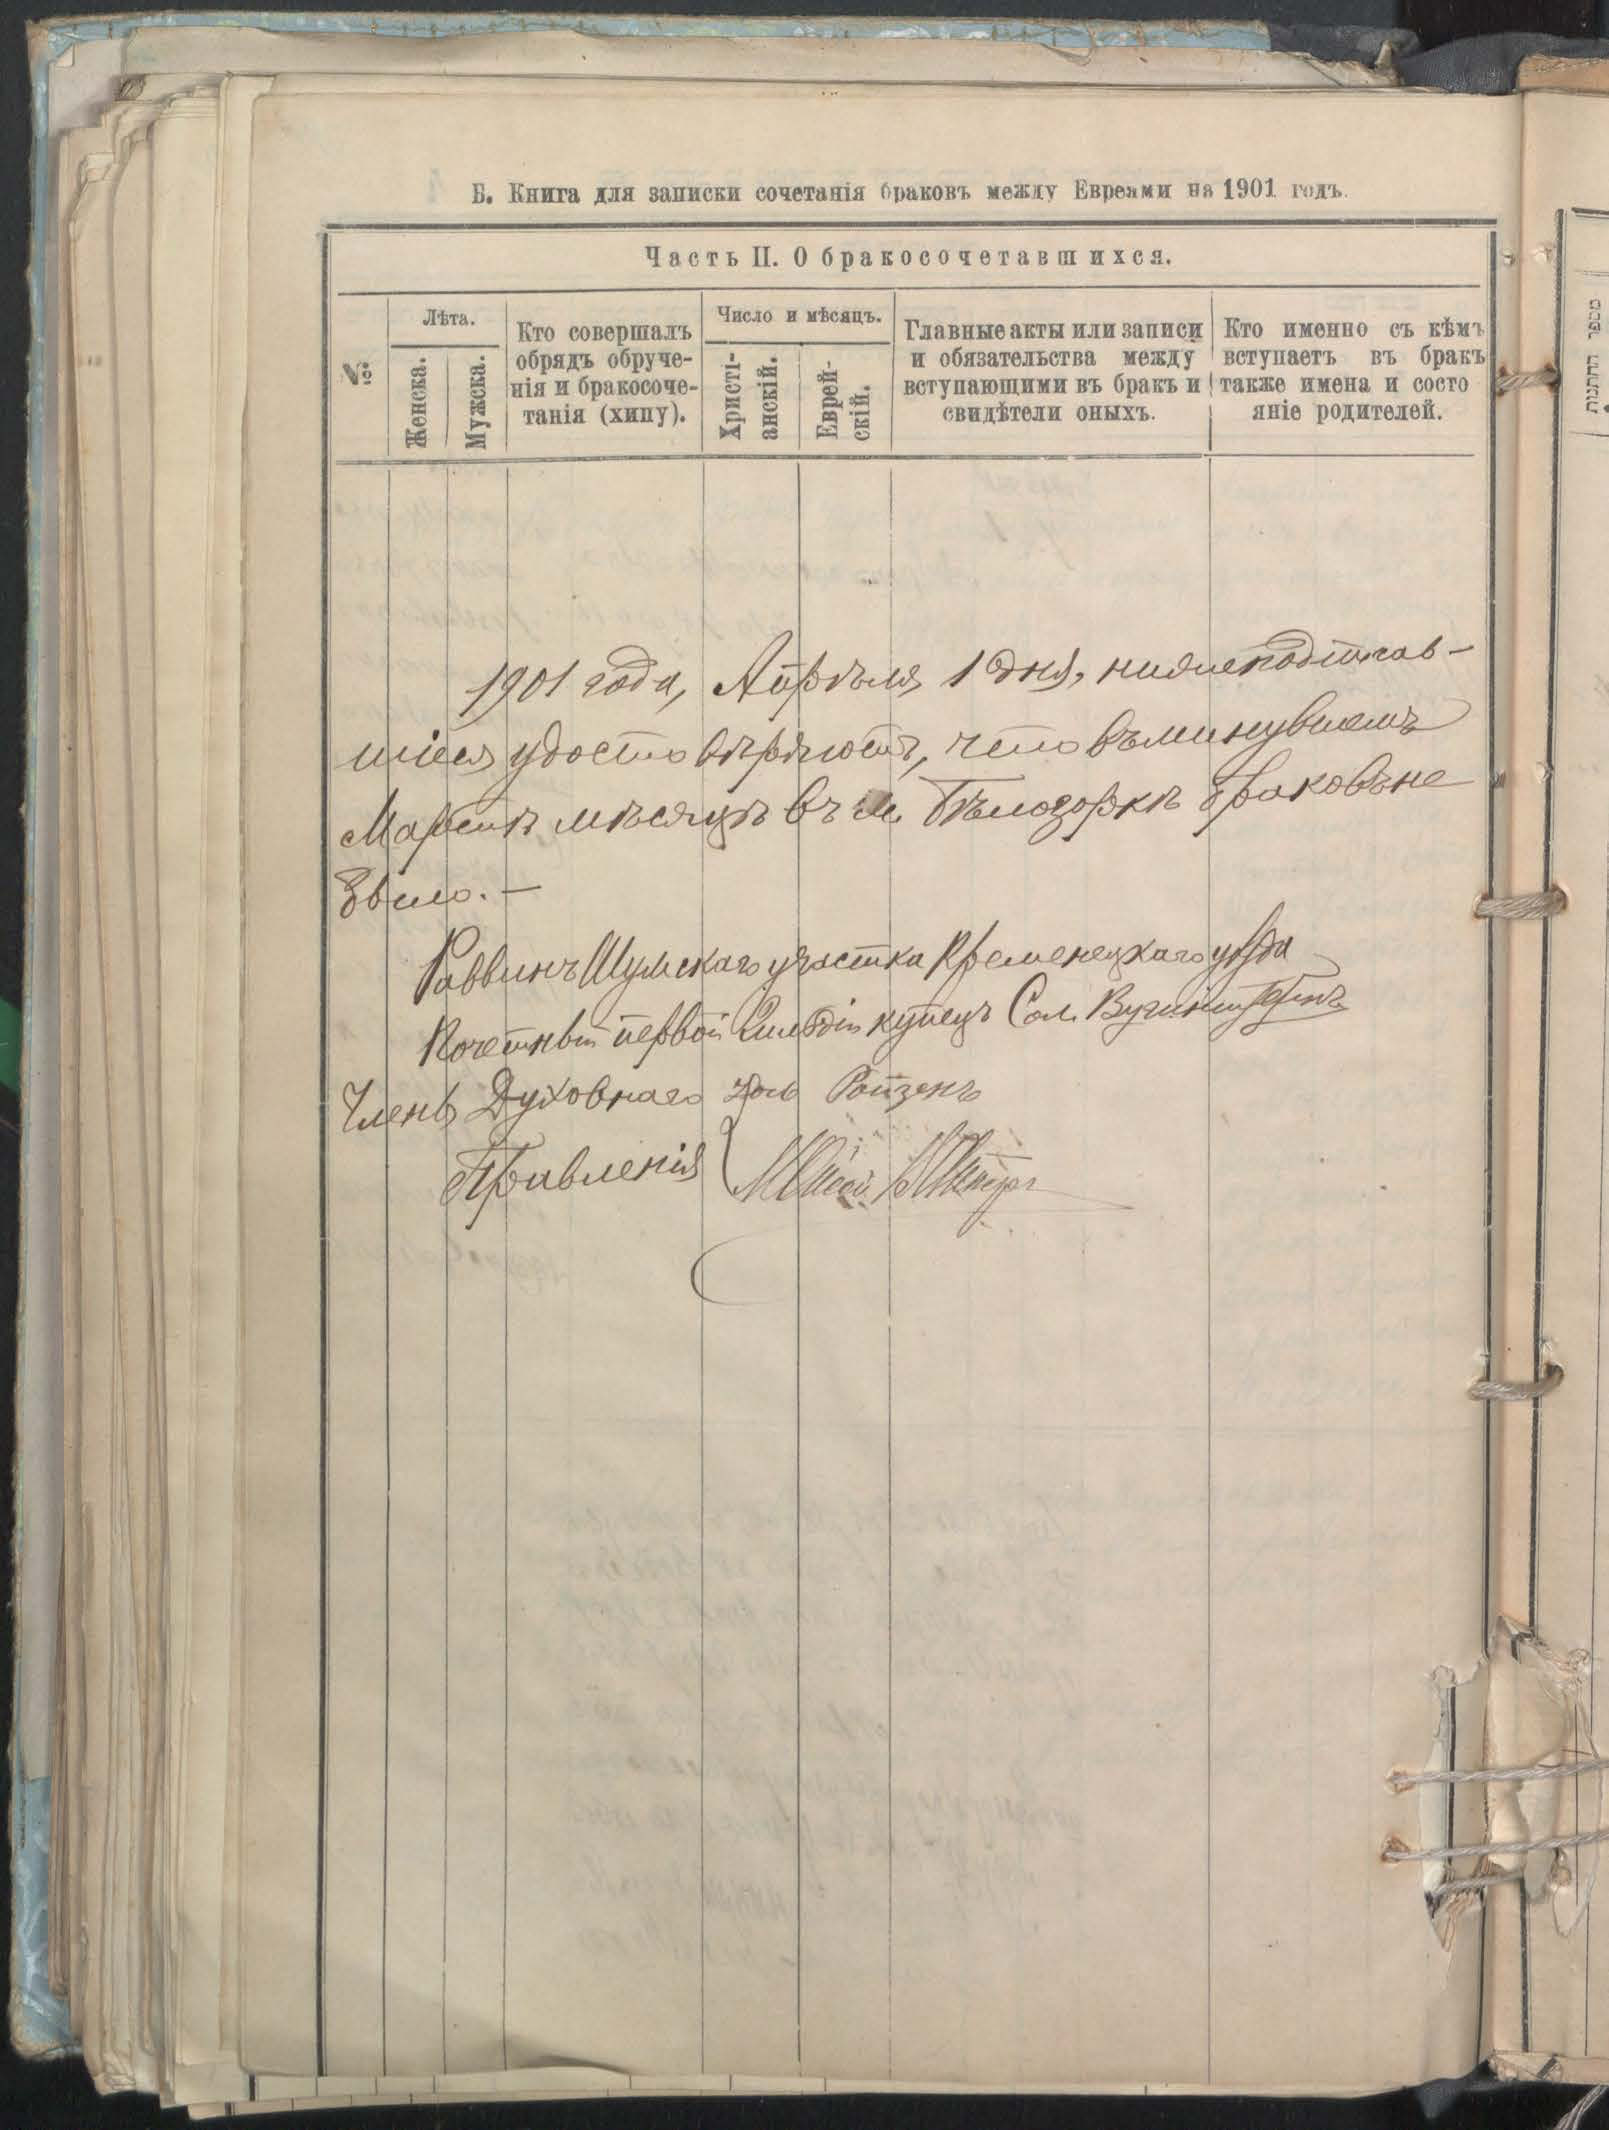 Б. Книга для записки сочетанія браковъ между Евреями на 1901 годъ.
Часть II. О бракосочетавшихся.
№
Лѣта.
Женска.
Мужска.
Кто совершалъ
обрядъ обруче-
нія и бракосоче-
танія (хипу).
Число и мѣсяцъ.
Христі-
анскій.
Еврей-
скій.
Главные акты или записи
и обязательства между
вступающими въ бракъ и
свидѣтели оныхъ.
Кто именно съ кѣмъ
вступаетъ въ бракъ
также имена и состо
яніе родителей.
1901 года, Апрѣля 1 дня, нижеподписав-
шіеся удостовѣряютъ, что въ минувшемъ
Мартѣ мѣсяцѣ въ м. Бѣлозоркѣ браковъ не
было. —
Раввинъ Шумскаго участка Кременецкаго уѣзда
Почетный первой Гильдіи купецъ Сол.
Члены Духовнаго Ройзенъ
Правленія
מספר החתונות